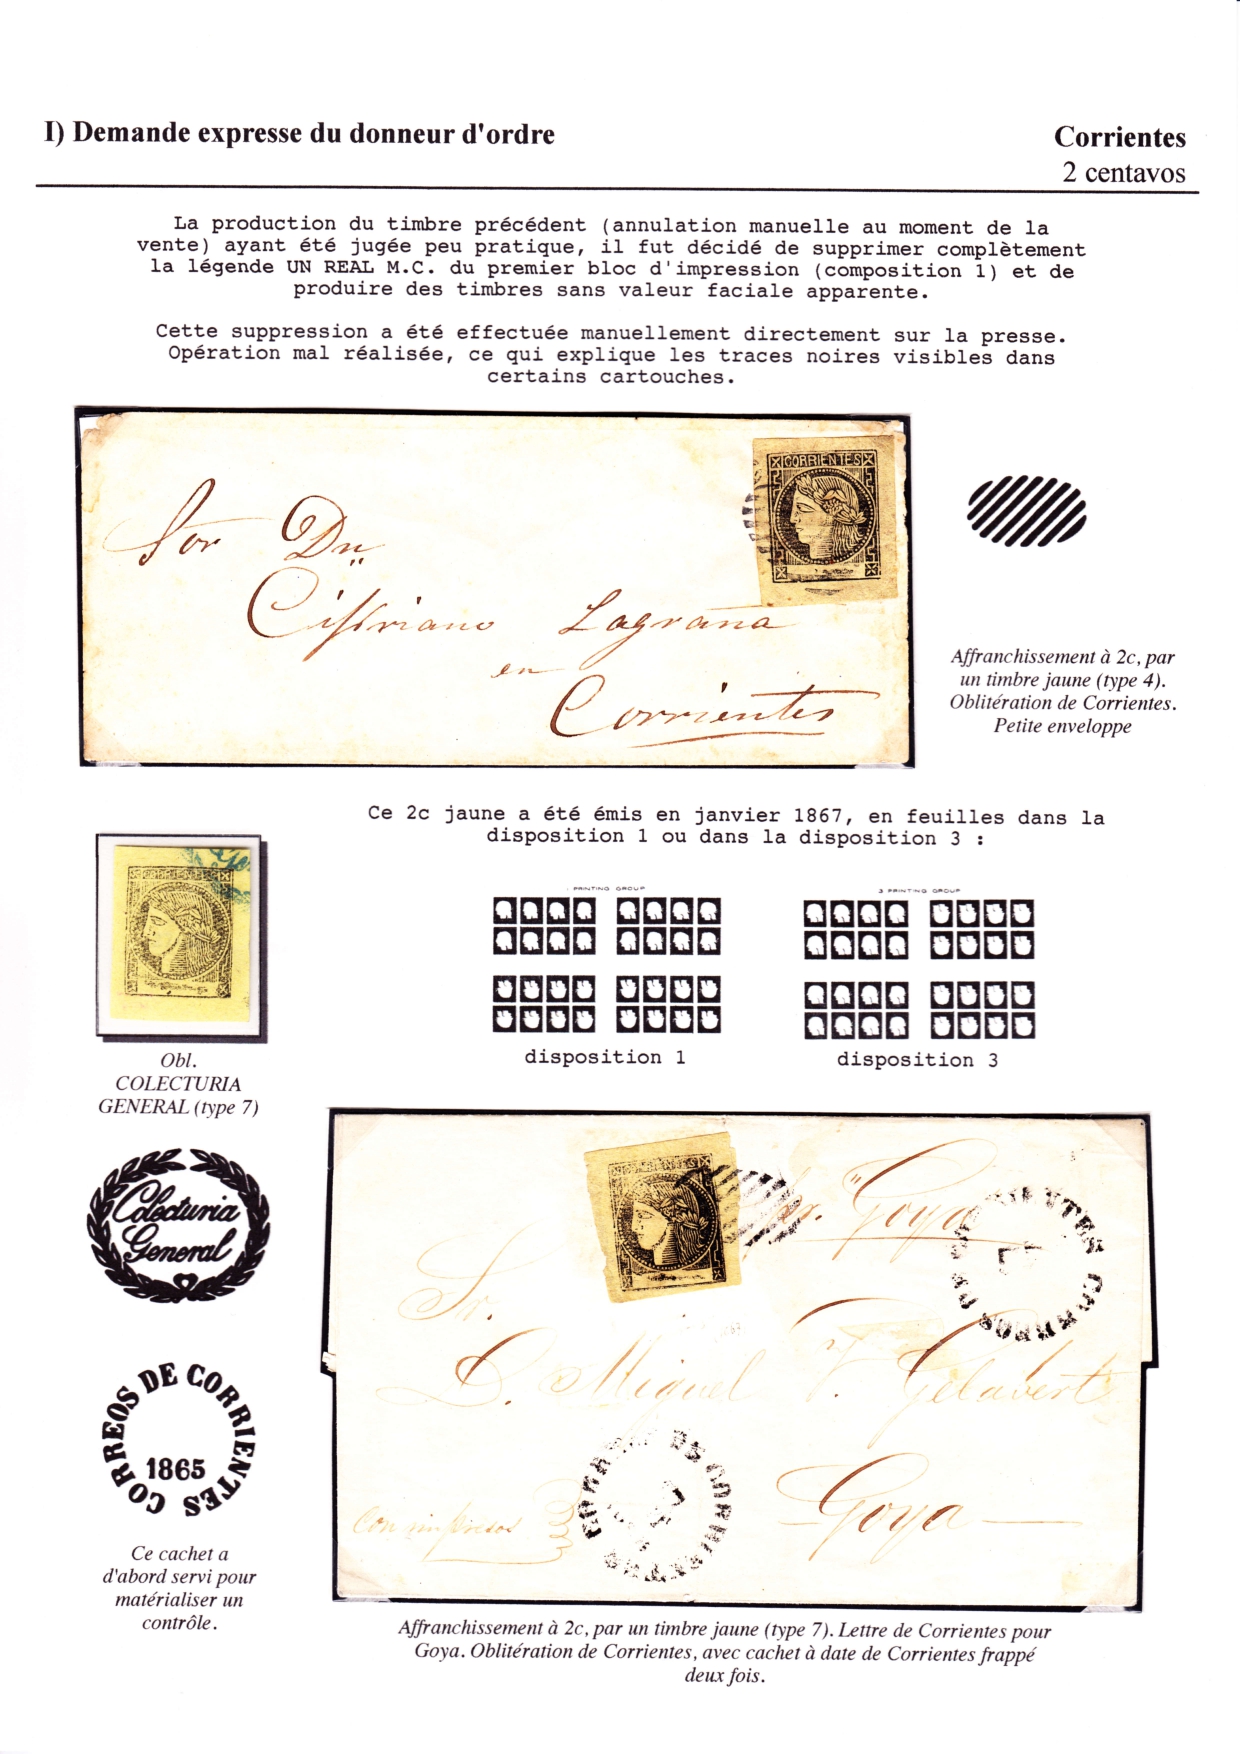 I) Demande expresse du donneur d'ordre
Corrientes
2 centavos
La production du timbre précédent (annulation manuelle au moment de la
vente) ayant été jugée peu pratique, il fut décidé de supprimer complètement
la légende UN REAL M.C. du premier bloc d'impression (composition 1) et de
produire des timbres sans valeur faciale apparente.
Cette suppression a été effectuée manuellement directement sur la presse.
Opération mal réalisée, ce qui explique les traces noires visibles dans
certains cartouches.
CORRIENTES
Sor Dn
Cipriano Lagraña
en
Corrientes
Affranchissement à 2c, par
un timbre jaune (type 4).
Oblitération de Corrientes.
Petite enveloppe
Ce 2c jaune a été émis en janvier 1867, en feuilles dans la
disposition 1 ou dans la disposition 3 :
1 PRINTING GROUP
3 PRINTING GROUP
disposition 1
disposition 3
Obl.
COLECTURIA
GENERAL (type 7)
Colecturia
General
CORREOS DE CORRIENTES
1865
Ce cachet a
d'abord servi pour
matérialiser un
contrôle.
CORRIENTES
Goya
CORREOS DE CORRIENTES
Sr.
D. Miguel V. Gelabert
Goya
CORREOS DE CORRIENTES
con impresos
Affranchissement à 2c, par un timbre jaune (type 7). Lettre de Corrientes pour
Goya. Oblitération de Corrientes, avec cachet à date de Corrientes frappé
deux fois.